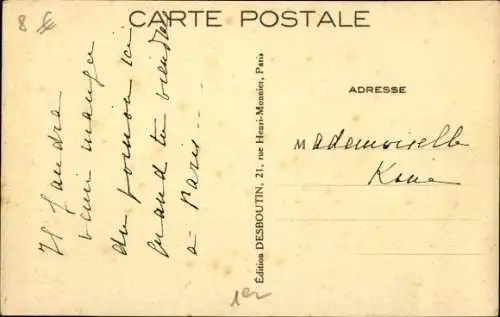 8
CARTE POSTALE
Il faudra
venir manger
du poisson ici
quand tu viendras
à Paris...
Édition DESBOUTIN, 21, rue Henri-Monnier, Paris
ADRESSE
Mademoiselle
1er